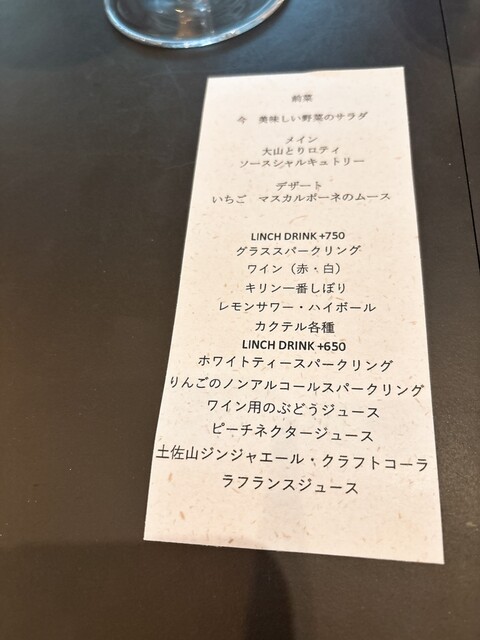 前菜
今　美味しい野菜のサラダ
メイン
大山とりロティ
ソースシャルキュトリー
デザート
いちご　マスカルポーネのムース
LINCH DRINK +750
グラススパークリング
ワイン（赤・白）
キリン一番しぼり
レモンサワー・ハイボール
カクテル各種
LINCH DRINK +650
ホワイトティースパークリング
りんごのノンアルコールスパークリング
ワイン用のぶどうジュース
ピーチネクタージュース
土佐山ジンジャエール・クラフトコーラ
ラフランスジュース